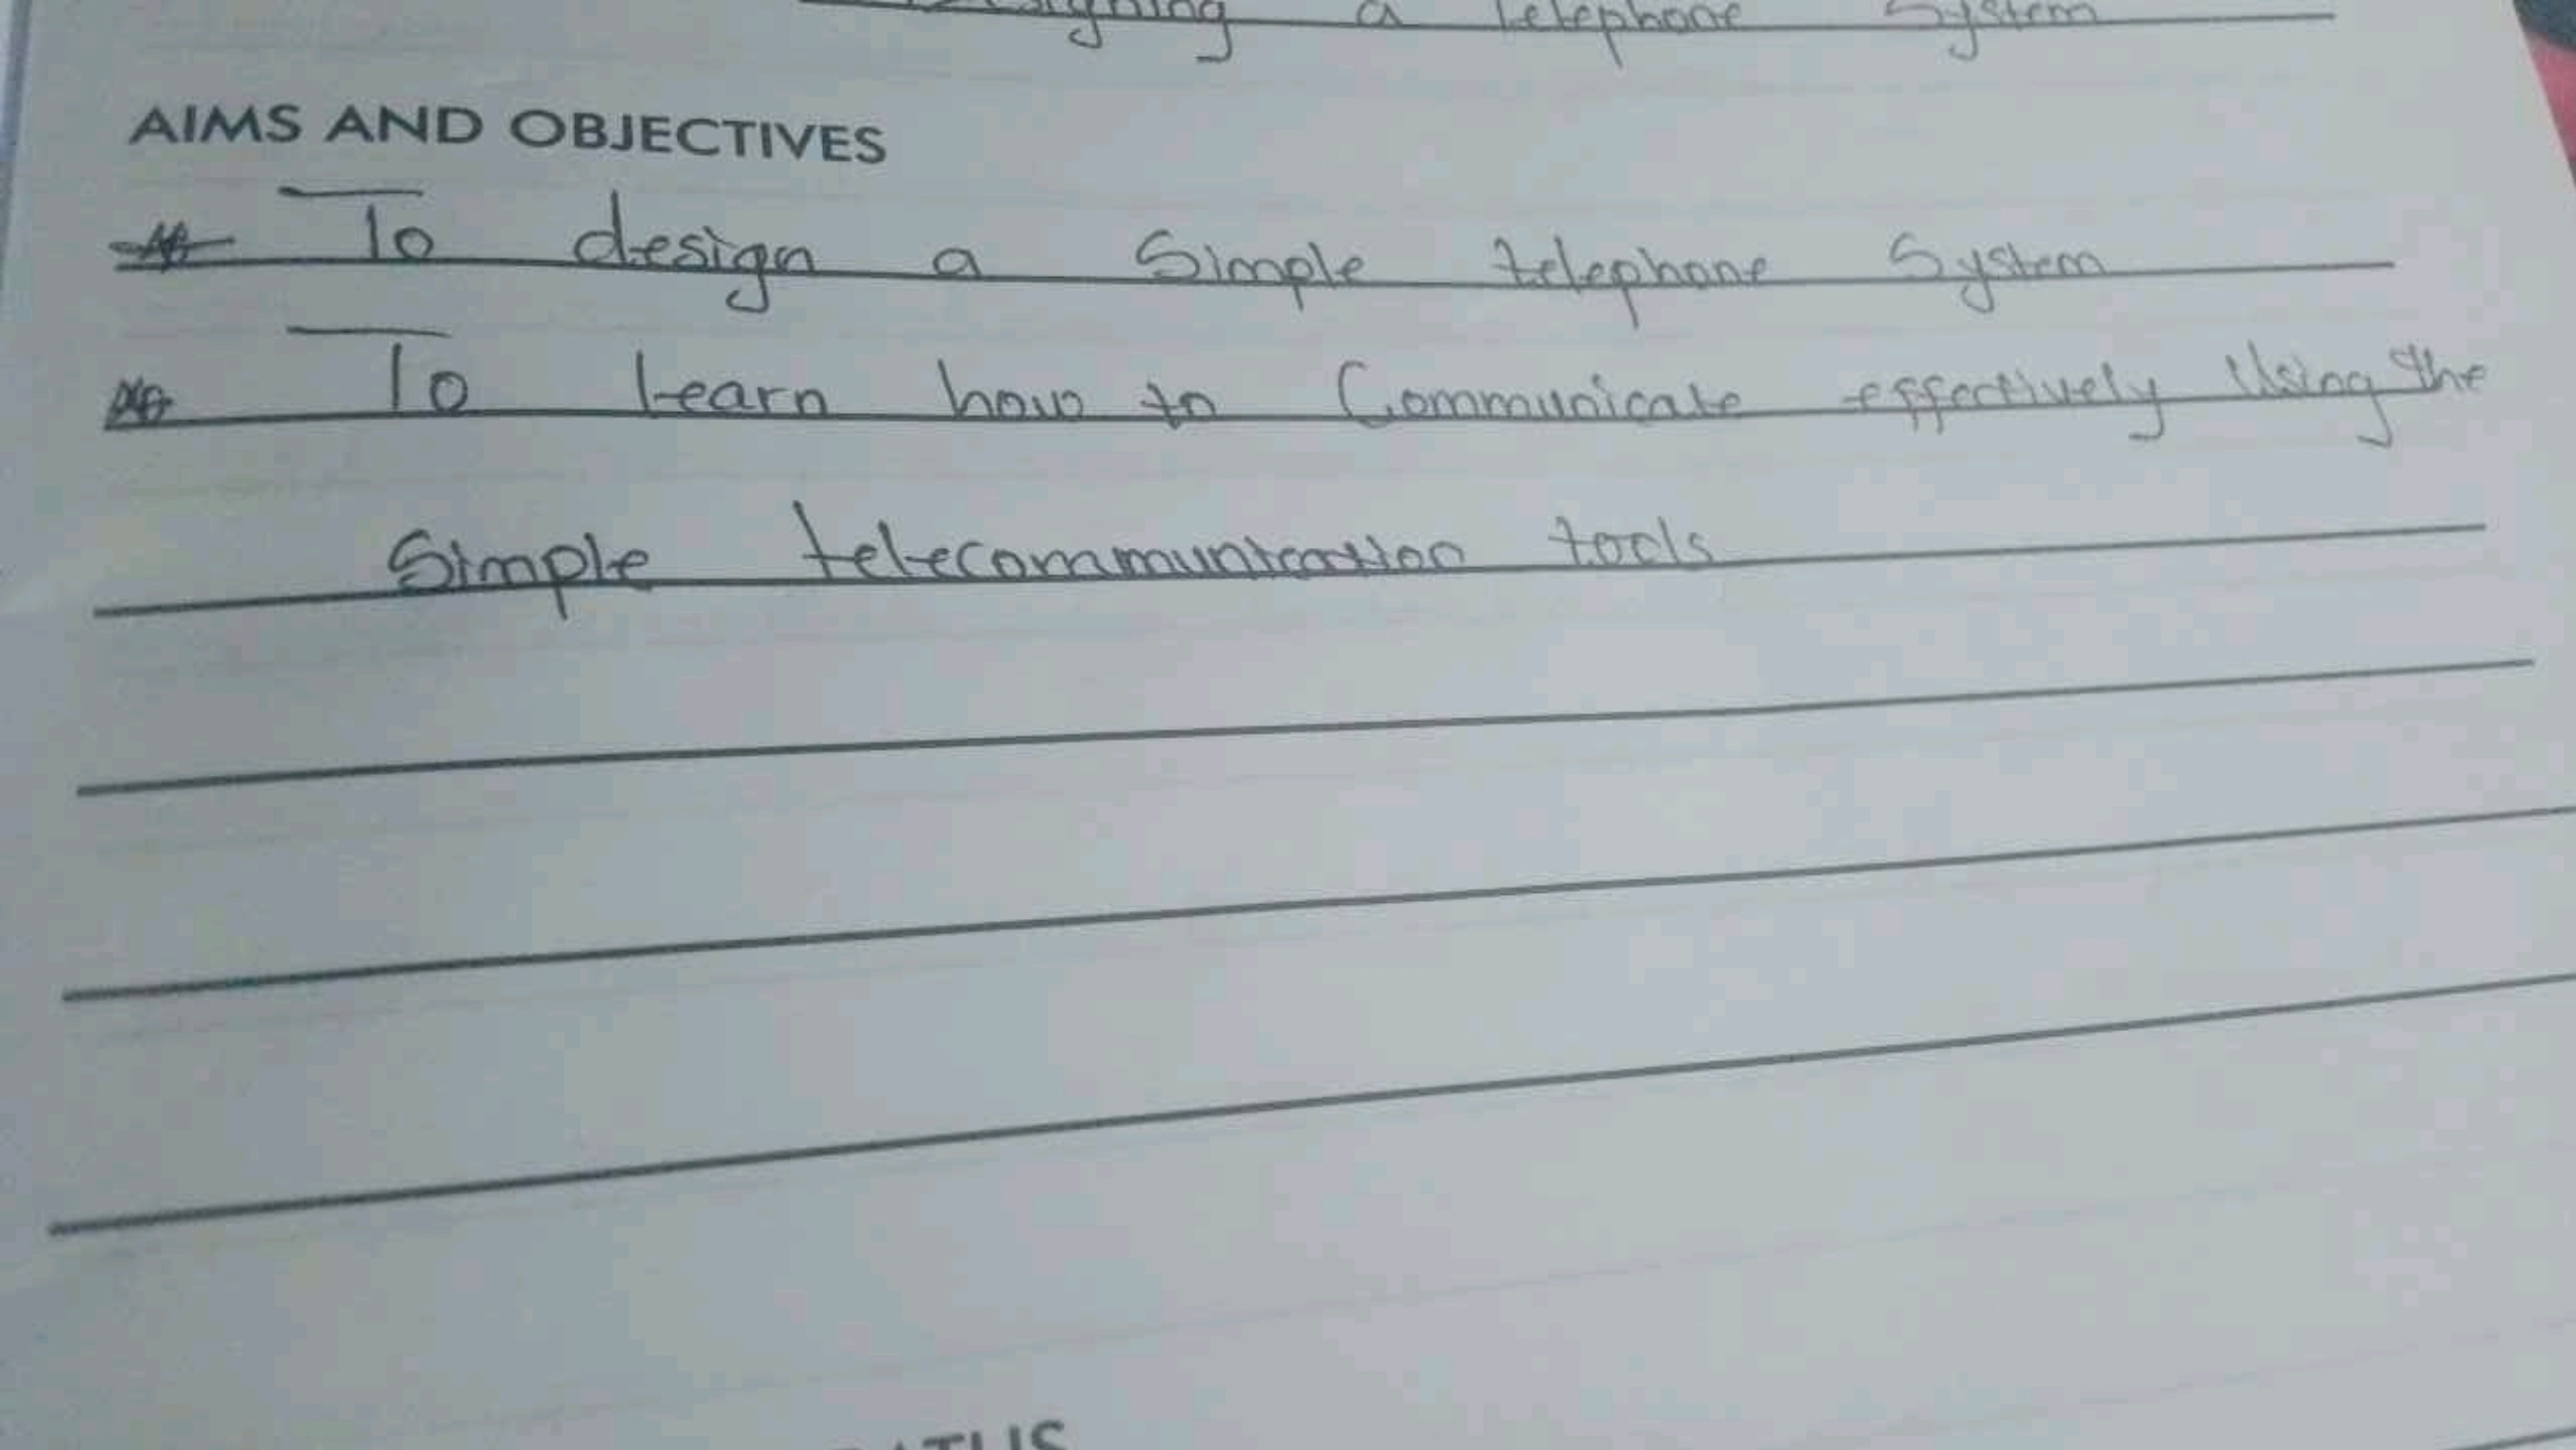 a telephone System
AIMS AND OBJECTIVES
* To design a Simple telephone System
* To learn how to Communicate effectively Using the
Simple telecommunication tools